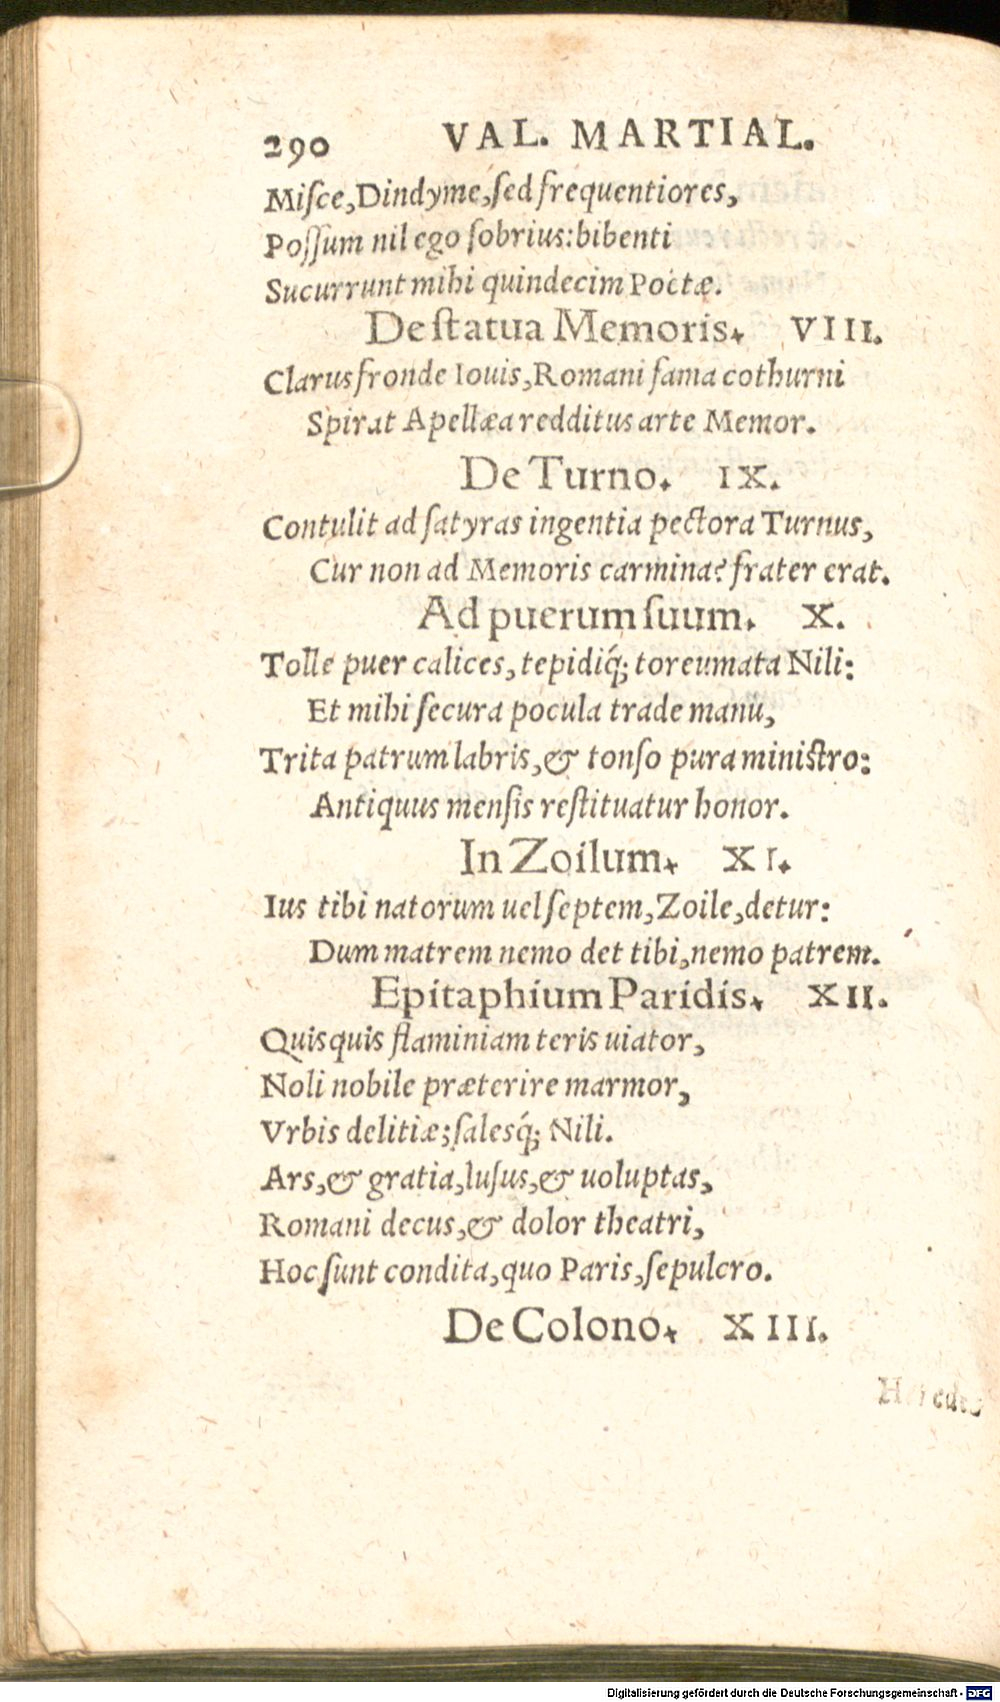 290 VAL. MARTIAL.
Miſce,Dindyme,ſed frequentiores,
Poſſum nil ego ſobrius:bibenti
Sucurrunt mihi quindecim Poetæ.
De ſtatua Memoris. VIII.
Clarus fronde Iouis,Romani fama cothurni
Spirat Apellæa redditus arte Memor.
De Turno. IX.
Contulit ad ſatyras ingentia pectora Turnus,
Cur non ad Memoris carmina? frater erat.
Ad puerum ſuum. X.
Tolle puer calices,tepidiq́; toreumata Nili:
Et mihi ſecura pocula trade manu,
Trita patrum labris,& tonſo pura miniſtro:
Antiquus menſis reſtituatur honor.
In Zoilum. XI.
Ius tibi natorum uel ſeptem,Zoile,detur:
Dum matrem nemo det tibi,nemo patrem.
Epitaphium Paridis. XII.
Quisquis flaminiam teris uiator,
Noli nobile præterire marmor,
Vrbis delitiæ;ſalesq́; Nili.
Ars,& gratia,luſus,& uoluptas,
Romani decus,& dolor theatri,
Hoc ſunt condita,quo Paris,ſepulcro.
De Colono. XIII.
Heredes
Digitalisierung gefördert durch die Deutsche Forschungsgemeinschaft - DFG